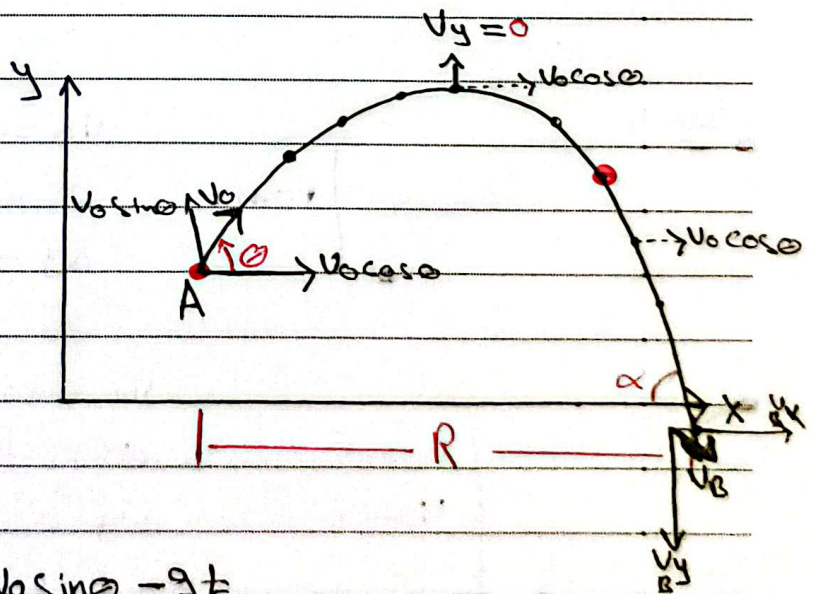 Vy = 0
y
V₀cosθ
V₀sinθ
V₀
θ
V₀cosθ
V₀cosθ
A
α
X
R
V_B
V_By
V₀sinθ - gt